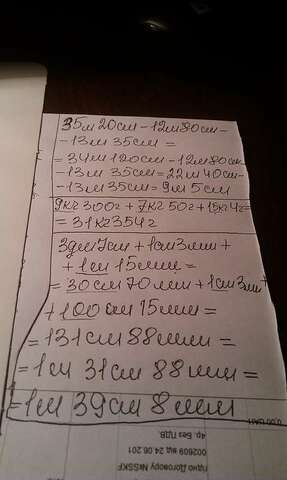 35м 20см - 12м 80см -
- 13м 35см =
= 34м 120см - 12м 80см -
- 13м 35см = 22м 40см -
- 13м 35см = 9м 5см
9кг 300г + 7кг 50г + 15кг 4г =
= 31кг 354г
3дм 7см + 1см 3мм +
+ 1м 15мм =
= 30см 70мм + 1см 3мм +
+ 100см 15мм =
= 131см 88мм =
= 1м 31см 88мм =
= 1м 39см 8мм
4р. Без ПДВ.
002609 від 24.06.201
гідно Договору №SSKF